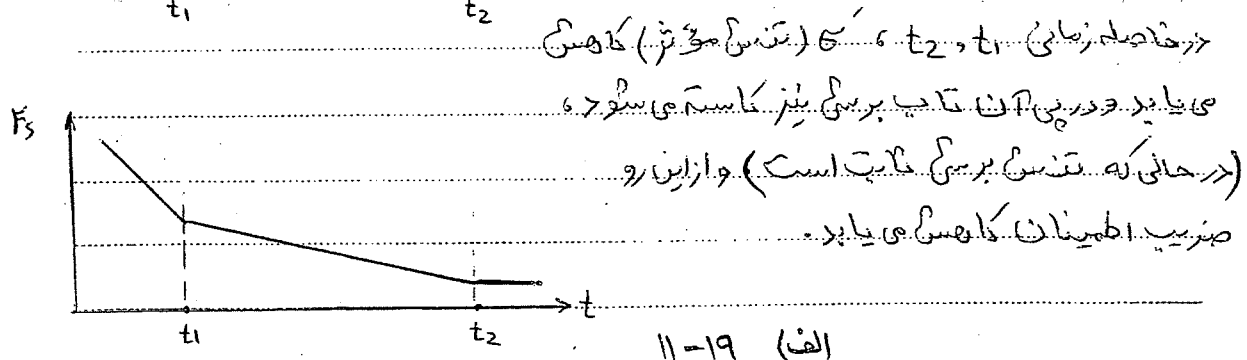 t₁ t₂
در فاصله زمانی t₁ و t₂ ، σ́ (تنش مؤثر) کاهش
می یابد و در پی آن تاب برشی نیز کاسته می شود ،
(در حالی که تنش برشی ثابت است) و از این رو
ضریب اطمینان کاهش می یابد .
Fs
t
t₁ t₂
الف) ۱۹-۱۱